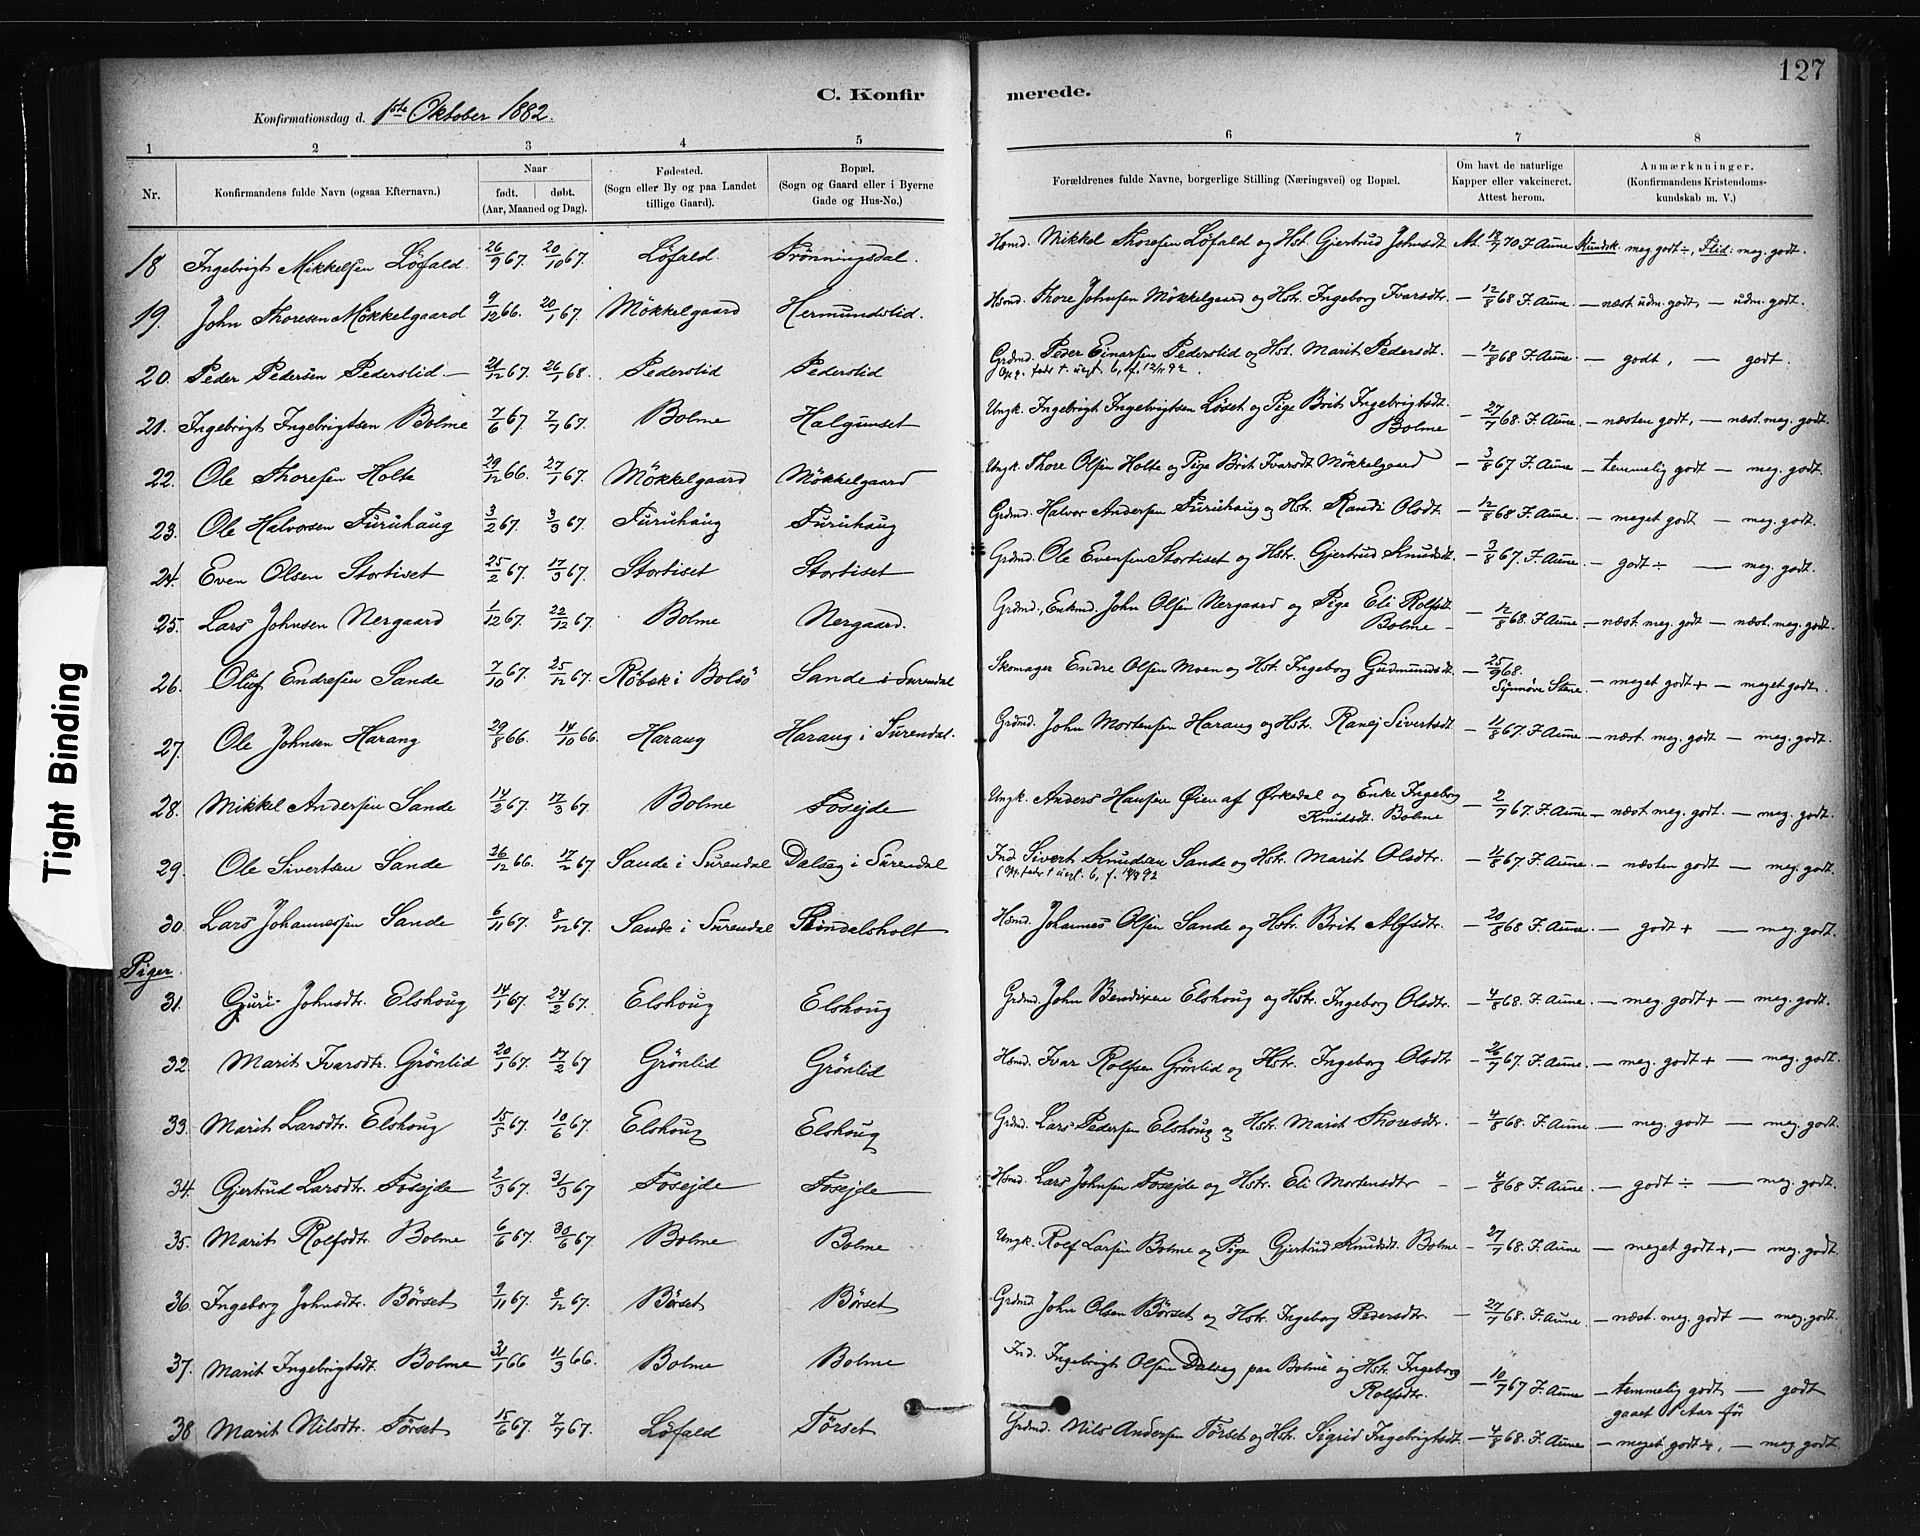 127
C. Konfirmerede.
Konfirmationsdag d. 1ste Oktober 1882.
1 2 3 4 5 6 7 8
Nr. Konfirmandens fulde Navn (ogsaa Efternavn). Naar født. døbt. (Aar, Maaned og Dag). Fødested. (Sogn eller By og paa Landet tillige Gaard). Bopæl. (Sogn og Gaard eller i Byerne Gade og Hus-No.) Forældrenes fulde Navne, borgerlige Stilling (Næringsvei) og Bopæl. Om havt de naturlige Kapper eller vakcineret. Attest herom. Anmærkninger. (Konfirmandens Kristendoms-kundskab m. V.)
18 Ingebrigt Mikkelsen Löfald 26/9 67. 20/10 67. Löfald. Trönningsdal. Hsmd. Mikkel Thoresen Löfald og Hst. Gjertrud Johnsdt. At. 18/7 70 F. Aune Kundsk. meg godt ÷, Flid: meg. godt.
19. John Thoresen Mökkelgaard 9/12 66. 20/1 67. Mökkelgaard Hermundslid. Hsmd. Thore Johnsen Mökkelgaard og Hstr. Ingeborg Ivarsdtr. — 12/8 68 F. Aune. — næst. udm. godt, — udm. godt.
20. Peder Pedersen Pederslid — 21/12 67. 26/1 68. Pederslid Pederslid Grdmd. Peder Einarsen Pederslid og Hst. Marit Pedersdt. — 12/8 68 F. Aune. — godt, — godt.
21. Ingebrigt Ingebrigtsen Bolme 7/6 67. 7/7 67. Bolme Halgunset Ungk. Ingebrigt Ingebrigtsen Løset og Pige Brit Ingebrigtsdt. Bolme — 27/7 68. F. Aune. — næsten godt, — næst. meg. godt.
22. Ole Thoresen Holte 29/12 66. 27/1 67. Mökkelgaard Mökkelgaard Ungk. Thore Olsen Holte og Pige Brit Ivarsdt Mökkelgaard — 3/8 67 F. Aune — temmelig godt — meg. godt.
23. Ole Halvorsen Furuhaug 3/2 67. 3/3 67. Furuhaug Furuhaug Grdmd. Halvor Andersen Furuhaug og Hstr. Randi Olsdt. — 12/8 68 F. Aune. — meget godt — meg. godt.
24. Even Olsen Stortiset 25/2 67. 17/3 67. Stortiset Stortiset Grdmd. Ole Evensen Stortiset og Hstr. Gjertrud Knudsdt. — 3/8 67. F. Aune — godt ÷ — meg. godt.
25. Lars Johnsen Nergaard 1/12 67. 22/12 67. Bolme Nergaard. Grdmd., Enkmd. John Olsen Nergaard og Pige Eli Rolfsdt. Bolme — — 12/8 68. F. Aune — næst. meg. godt — næst. meg. godt.
26. Oluf Endresen Sande 7/10 67. 25/12 67. Röbek i Bolsö Sande i Surendal Skomager Endre Olsen Moen og Hst. Ingeborg Gudmundsdt. — 25/9 68. Synnöve Stene — meget godt + — meget godt.
27. Ole Johnsen Harang 29/8 66. 14/10 66. Harang Harang i Surendal. Grdmd. John Mortensen Harang og Hstr. Ranej Sivertsdt — 4/8 67. F. Aune — næst. meg. godt — meg. godt.
28. Mikkel Andersen Sande 14/2 67. 17/3 67 Bolme Fosejde Ungk. Anders Hansen Øien af Ørkedal og Enke Ingeborg Knudsdt. Bolme — 2/7 67. F. Aune — næst meg. godt. — meg. godt.
29. Ole Sivertsen Sande 26/12 66. 17/2 67. Sande i Surendal Dalseg i Surendal Ind. Sivert Knudsen Sande og Hstr. Marit Olsdtr. — 4/8 67. F. Aune — næsten godt — meg. godt.
30. Lars Johannessen Sande 6/11 67. 8/12 67. Sande i Surendal Rindalsholt Hsmd. Johannes Olsen Sande og Hstr. Brit Alfsdtr. — 20/8 68 F. Aune. — godt + — meg. godt.
Piger.
31. Guri Johnsdtr. Elshoug 14/1 67. 24/2 67. Elshoug Elshoug Grdmd. John Bendixen Elshoug og Hstr. Ingeborg Olsdtr. — 4/8 68. F. Aune — meg. godt + — meg. godt.
32. Marit Ivarsdtr. Grönlid 20/1 67. 17/2 67 Grönlid Grönlid Hsmd. Ivar Rolfsen Grönlid og Hstr. Ingeborg Olsdtr — 26/7 67. F. Aune. — meg. godt + — meg. godt.
33. Marit Larsdtr. Elshoug 15/5 67. 10/6 67. Elshoug Elshoug Grdmd. Lars Pedersen Elshoug og Hstr. Marit Thoresdtr. — 4/8 68. F. Aune. — meg. godt — meg. godt.
34. Gjertrud Larsdtr. Fosejde 2/3 67. 31/3 67 Fosejde Fosejde Hsmd. Lars Johnsen Fosejde og Hstr. Eli Mortensdtr — — 4/8 68 F. Aune. — godt ÷ — meg. godt.
35. Marit Rolfsdtr Bolme 6/6 67. 30/6 67. Bolme Bolme Ungk. Rolf Larsen Bolme og Pige Gjertrud Knudsdt. Bolme — 27/7 68. F. Aune — meget godt +, — meg. godt.
36. Ingeborg Johnsdtr. Börset 9/11 67. 8/12 67. Börset Börset Grdmd. John Olsen Börset og Hstr. Ingeborg Pedersdtr. — 27/7 68. F. Aune — næst. meg. godt — meg. godt.
37. Marit Ingebrigtsdt. Bolme 31/1 66 11/3 66. Bolme Bolme Ind. Ingebrigt Olsen Dalseg paa Bolme og Hst. Ingeborg Rolfsdtr. — 10/7 67 F. Aune — temmelig godt — godt
gaaet 1 Aar för
38 Marit Nilsdtr. Törset 15/6 67. 7/7 67. Löfald Törset Grdmd. Nils Andersen Törset og Hstr. Sigrid Ingebrigtsdt. — 4/8 68. F. Aune — meget godt +, — meg. godt.
Tight Binding